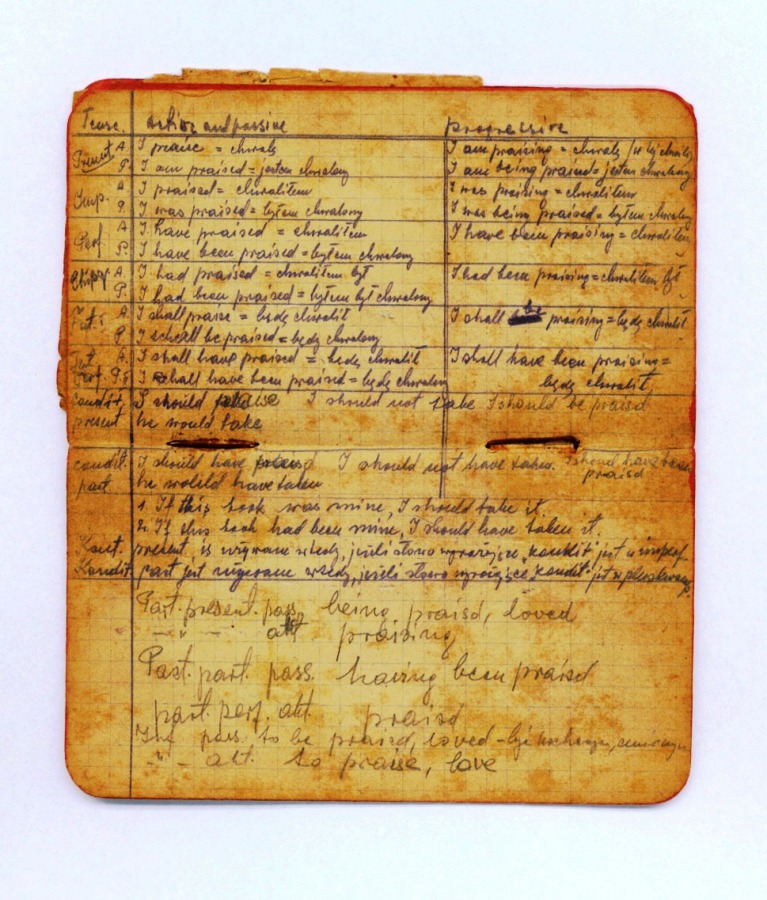 Tense. Active and passive progressive
Present A. I praise = chwalę I am praising = chwalę (w tej chwili)
P. I am praised = jestem chwalony I am being praised = jestem chwalony
Imp. A. I praised = chwaliłem I was praising = chwaliłem
P. I was praised = byłem chwalony I was being praised = byłem chwalony
Perf. A I have praised = chwaliłem I have been praising = chwaliłem
P. I have been praised = byłem chwalony
A I had praised = chwaliłem był I had been praising = chwaliłem był
P. I had been praised = byłem był chwalony
Fut. A I shall praise = będę chwalił I shall be praising = będę chwalił
P I schall be praised = będę chwalony
Fut. A. I shall have praised = będę chwalił I shall have been praising =
Perf. P. I schall have been praised = będę chwalony będę chwalił
condit. I should praise I should not take I should be praisd
present he would take
condit. I should have praisd I should not have taken. I shoud have been
past. he wolild have taken praisd
1. If this book was mine, I should take it.
2. If this book had been mine, I should have taken it.
Kont. present. is używane wtedy, jeśli słowo wyrażające kondit jest w imperf.
Kondit. past jest używane wtedy, jeśli słowo wyrażające kondit. jst w
Part. present. pass. being praisd, loved
— " — att praising
Past. part. pass. having been praisd
part. perf. att. praisd
Inf pass. to be praisd, loved - być
— " — att. to praise, love